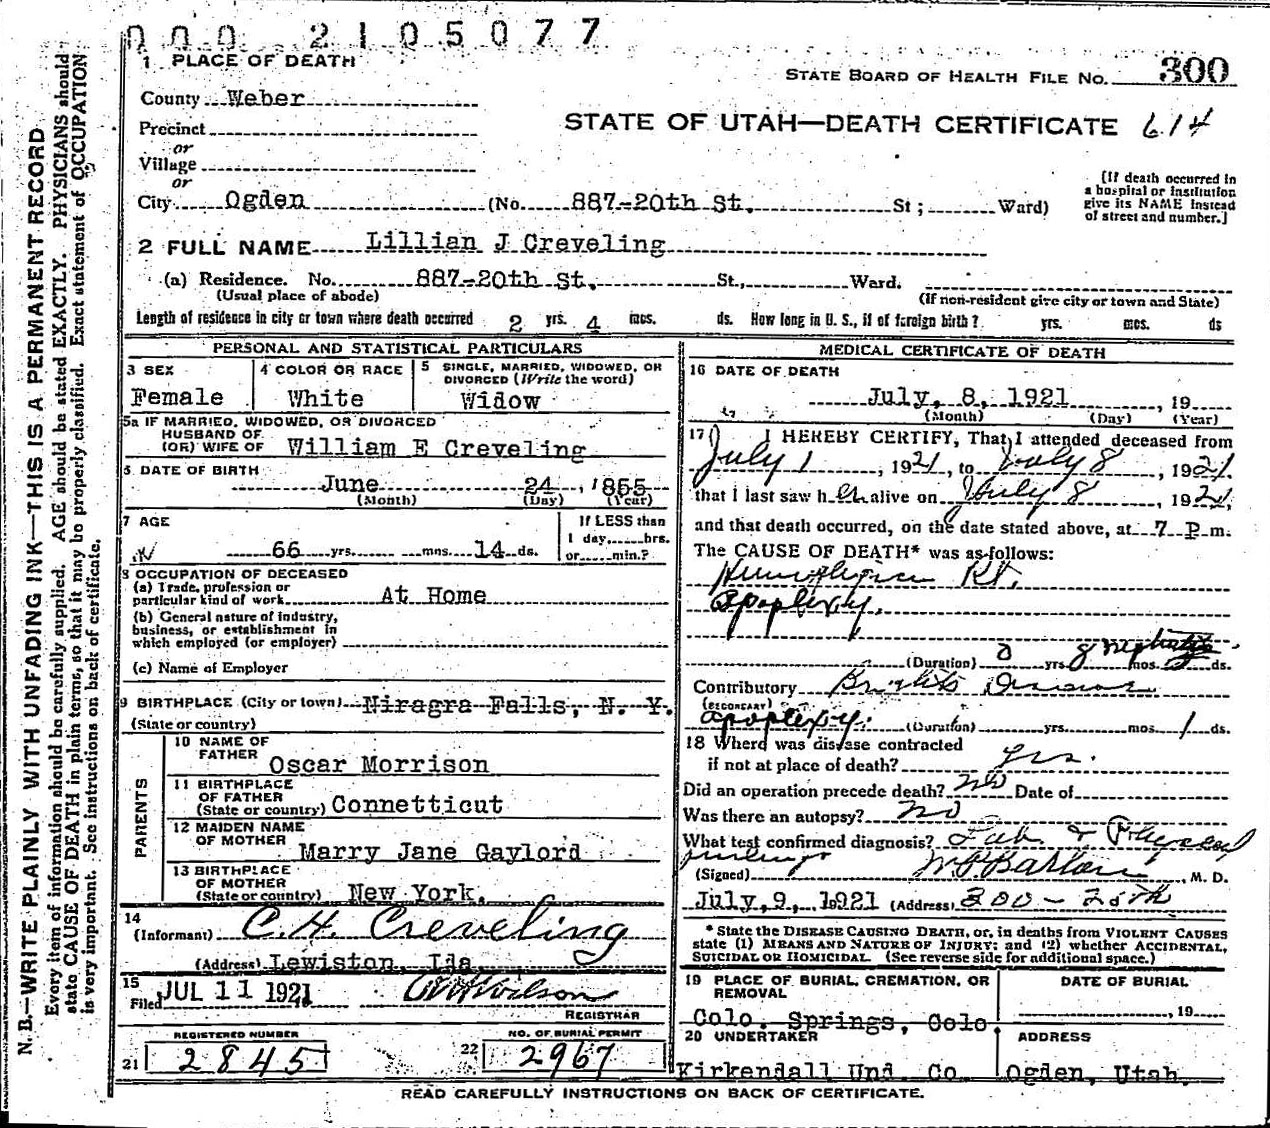 000 2105077
1 PLACE OF DEATH
STATE BOARD OF HEALTH FILE NO. 300
County Weber
STATE OF UTAH—DEATH CERTIFICATE 614
Precinct
or
Village
or
City Ogden (No. 887-20th St. St; Ward)
[If death occurred in
a hospital or institution
give its NAME instead
of street and number.]
2 FULL NAME Lillian J Creveling
(a) Residence. No. 887-20th St. St., Ward.
(Usual place of abode) (If non-resident give city or town and State)
Length of residence in city or town where death occurred 2 yrs. 4 mos. ds. How long in U. S., if of foreign birth? yrs. mos. ds
PERSONAL AND STATISTICAL PARTICULARS
3 SEX
Female
4 COLOR OR RACE
White
5 SINGLE, MARRIED, WIDOWED, OR
DIVORCED (Write the word)
Widow
5a IF MARRIED, WIDOWED, OR DIVORCED
HUSBAND OF
(OR) WIFE OF William E Creveling
6 DATE OF BIRTH
June 24, 1855
(Month) (Day) (Year)
7 AGE
66 yrs. mns. 14 ds.
If LESS than
1 day, hrs.
or min.?
8 OCCUPATION OF DECEASED
(a) Trade, profession or
particular kind of work At Home
(b) General nature of industry,
business, or establishment in
which employed (or employer)
(c) Name of Employer
9 BIRTHPLACE (City or town) Niragra Falls, N. Y.
(State or country)
PARENTS
10 NAME OF
FATHER Oscar Morrison
11 BIRTHPLACE
OF FATHER
(State or country) Connetticut
12 MAIDEN NAME
OF MOTHER Marry Jane Gaylord
13 BIRTHPLACE
OF MOTHER
(State or country) New York.
14
(Informant) C. H. Creveling
(Address) Lewiston, Ida
15
Filed JUL 11 1921 Wilson
REGISTRAR
REGISTERED NUMBER
21 2845
NO. OF BURIAL PERMIT
22 2967
MEDICAL CERTIFICATE OF DEATH
16 DATE OF DEATH
July, 8, 1921, 19
(Month) (Day) (Year)
17 I HEREBY CERTIFY, That I attended deceased from
July 1, 1921, to July 8, 1921,
that I last saw her alive on July 8, 1921,
and that death occurred, on the date stated above, at 7 P m.
The CAUSE OF DEATH* was as follows:
Hemiplegia Rt.
Apoplexy.
(Duration) yrs. mos. ds.
Contributory Brights Disease
(SECONDARY)
apoplexy. (Duration) yrs. mos. 1 ds.
18 Where was disease contracted
if not at place of death? yes.
Did an operation precede death? no Date of
Was there an autopsy? no
What test confirmed diagnosis? Lab. & Physical
findings
(Signed) Barlow, M. D.
July, 9, 1921 (Address) 300 - 25th
* State the DISEASE CAUSING DEATH, or, in deaths from VIOLENT CAUSES
state (1) MEANS AND NATURE OF INJURY; and (2) whether ACCIDENTAL,
SUICIDAL OR HOMICIDAL. (See reverse side for additional space.)
19 PLACE OF BURIAL, CREMATION, OR
REMOVAL
Colo. Springs, Colo
DATE OF BURIAL
, 19
20 UNDERTAKER
Kirkendall Und. Co
ADDRESS
Ogden, Utah.
READ CAREFULLY INSTRUCTIONS ON BACK OF CERTIFICATE.
N. B.—WRITE PLAINLY WITH UNFADING INK—THIS IS A PERMANENT RECORD
Every item of information should be carefully supplied. AGE should be stated EXACTLY. PHYSICIANS should
state CAUSE OF DEATH in plain terms, so that it may be properly classified. Exact statement of OCCUPATION
is very important. See instructions on back of certificate.